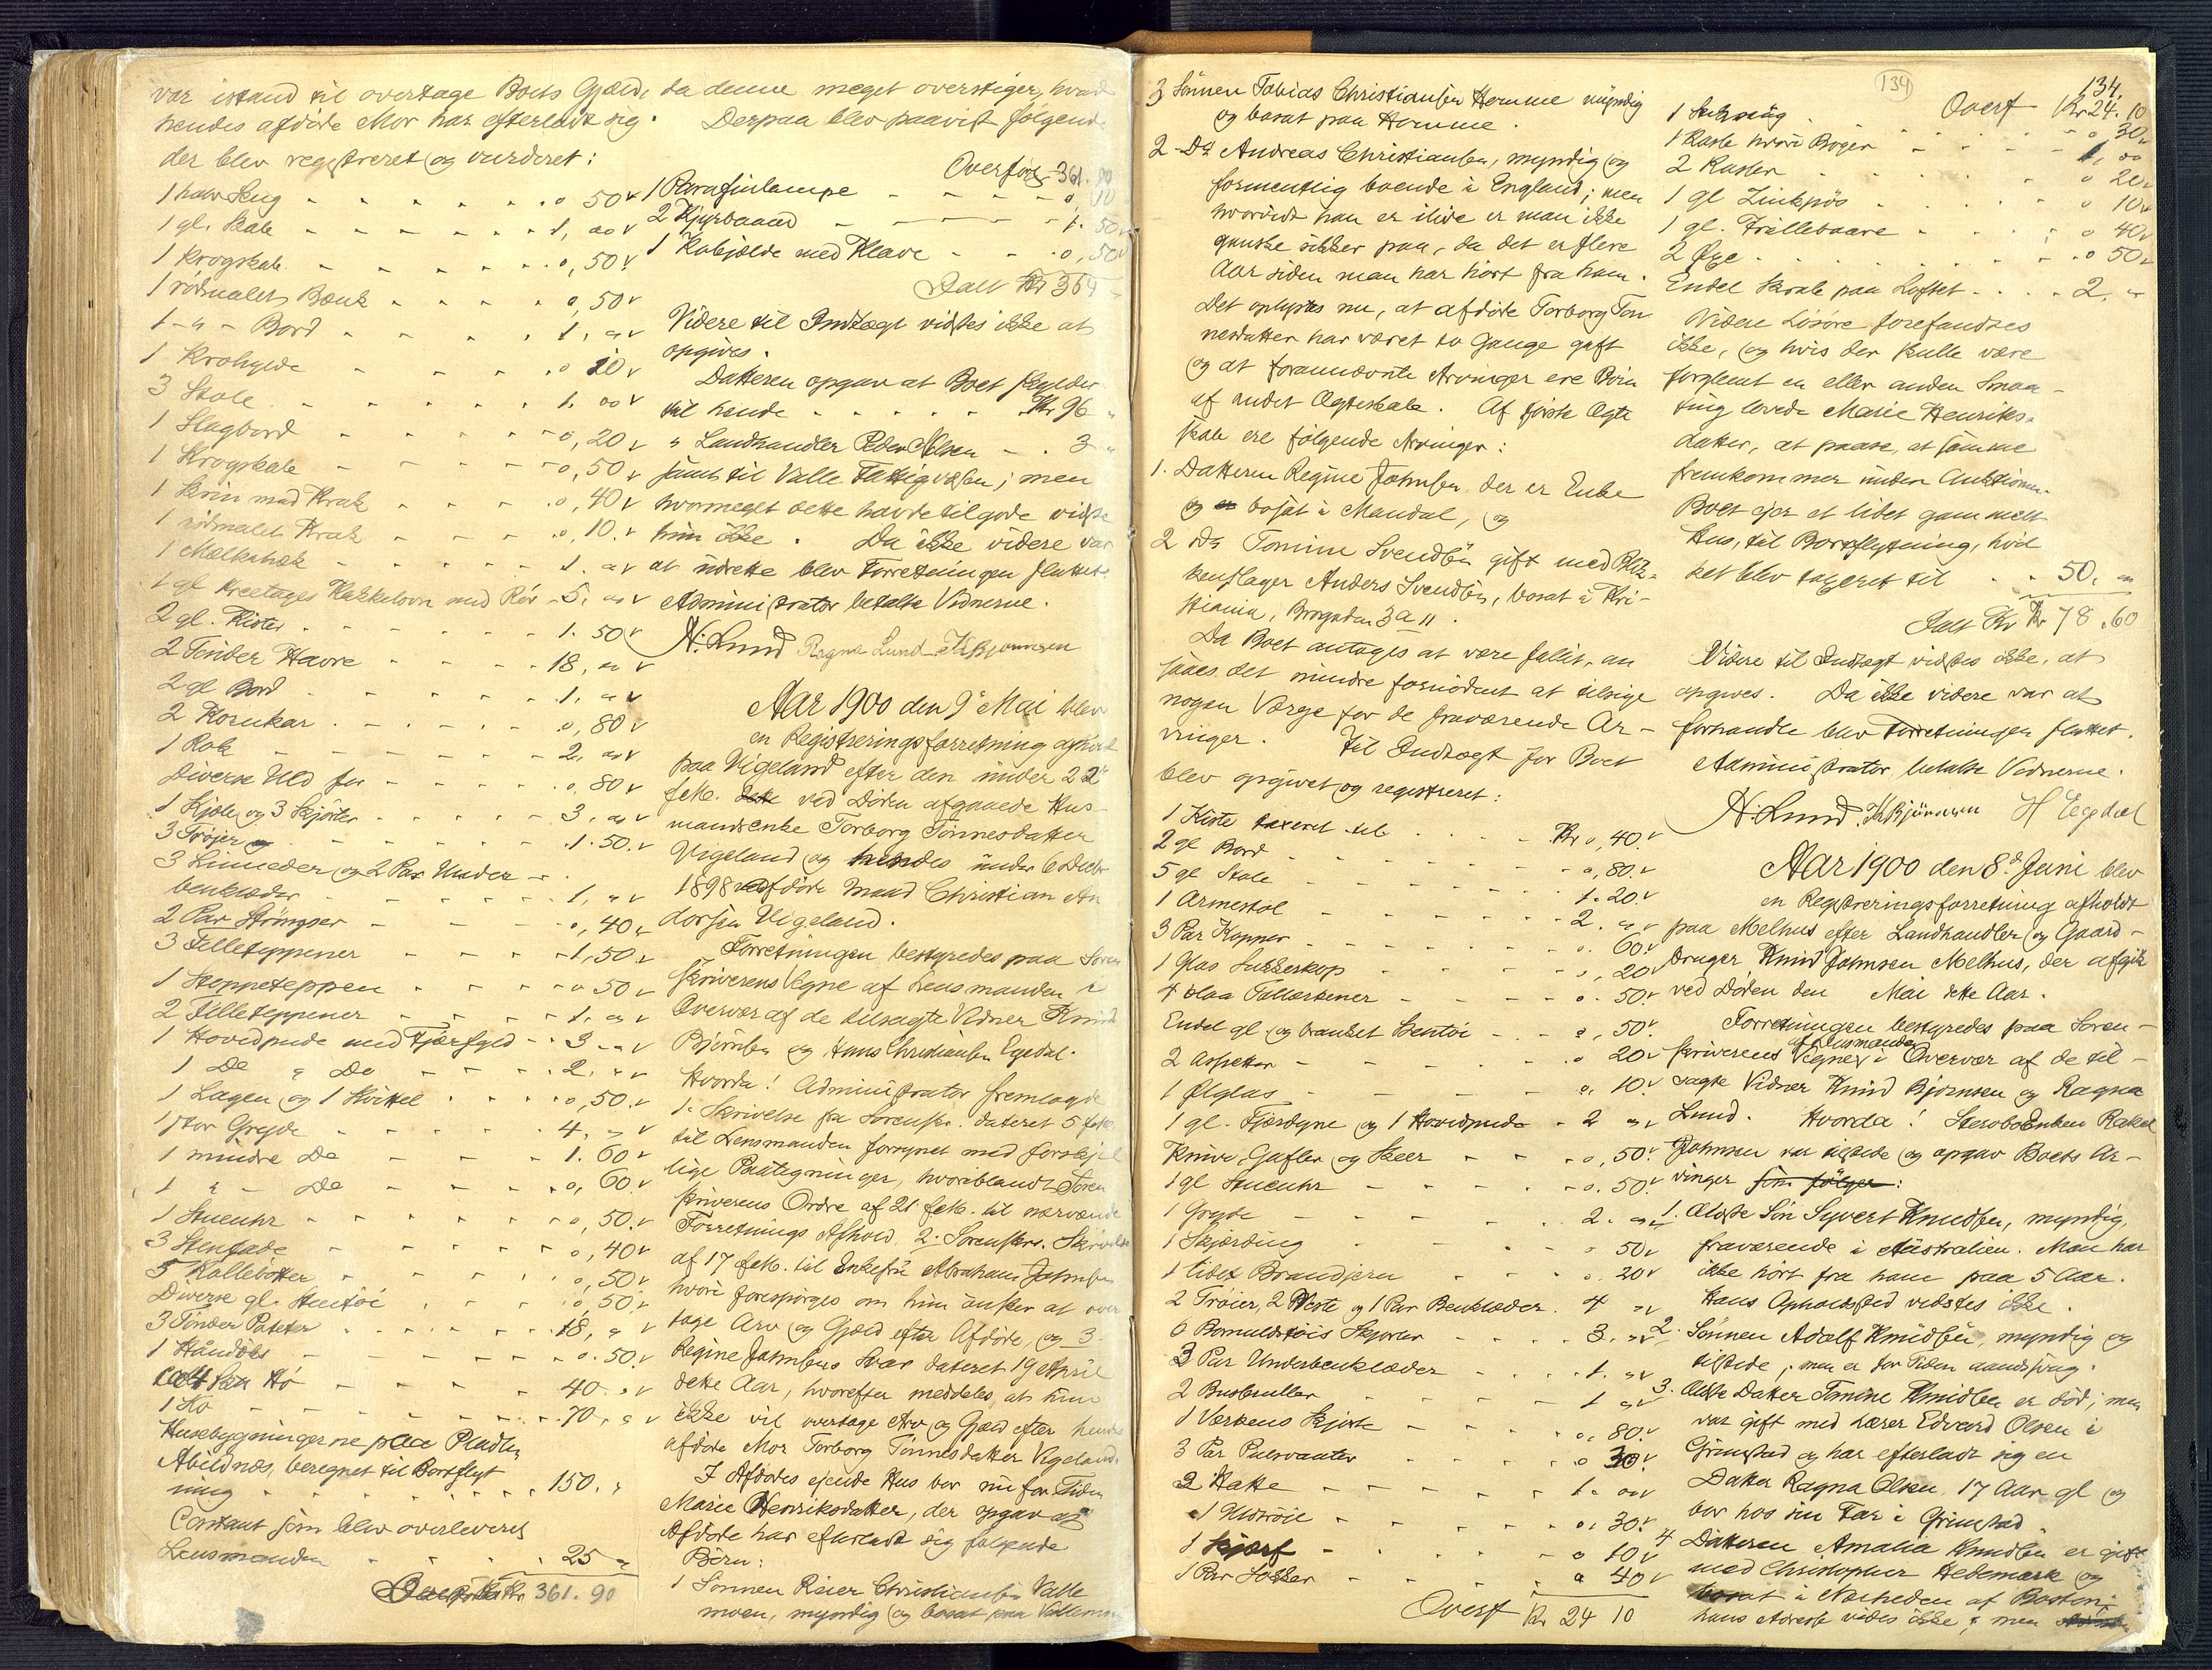 var istand til overtage Boets Gjæld, da denne meget overstiger, hvad
hendes afdøde Mor har efterladt sig. Derpaa blev paavist følgende
der blev registreret og vurderet:
1 halv Seng 0 50
1 gl. Skab 1, 00
1 Krogskab 0, 50
1 rødmalet Bænk 0, 50
1 - " - Bord 1, "
1 Krohylde 0 20
3 Stole 1. 00
1 Slagbord 0, 20
1 Krogskab 0, 50
1 Skrin med Krak 0, 40
1 rødmalet Krak 0, 10
1 Mælkehæk 1. "
1 gl treetages Kakkelovn med Rør 5. "
2 gl. Kister 1. 50
2 Tønder Havre 18, "
2 gl Bord 1, "
2 Kornkar 0, 80
1 Rok 2, "
Diverse Uld for 0, 80
1 Kjole og 3 Skjørter 3, "
3 Trøjer 1. 50
3 Linneder og 2 Par Under-
benklæder 1, "
2 Par Strømper 0, 40
3 Filleteppener 1, 50
1 Steppeteppen 0 50
2 Filleteppener 1, "
1 Hovedpude med Fjærfyld 3 - "
1 Do " Do 2. "
1 Lagen og 1 Hvittel 0, 50
1 stor Gryde 4. "
1 mindre Do 1. 60
1 " - Do 0, 60
1 Stueuhr 0, 50
3 Stenfade 0, 40
5 Kolleboter 0, 50
Diverse gl. Stentøi 0, 50
3 Tønder Poteter 18, "
1 Hånddøls 0. 50
Hø 40. "
1 Ko 70, "
Husebygningerne paa Pladsen
Abildnæs, beregnet til Bortflyt
ning 150. "
Contant som blev overleveret
Lensmanden 25 "
Kr. 361. 90
Overført 361. 90
1 Parafinlampe 0,
2 Kjyrbaand 1. 50
1 Kobjælde med Klave 0, 50
Ialt Kr 364 -
Videre til Indtægt vidstes ikke at
opgives.
Datteren opgav at Boet skylder
til hende Kr 96 "
" Landhandler Peder Olsen 3 "
samt til Valle Fattigvæsen; men
hvormeget dette havde tilgode vidste
hun ikke. Da ikke videre var
at udrette blev Forretningen sluttet.
Administrator betalte Vidnerne.
N. Lund Ragna Lund K Bjørnsen
Aar 1900 den 9de Mai blev
en Registreringsforretning afholdt
paa Vigeland efter den under 22de
febr. ved Døden afgaaede Hus-
mandsenke Torborg Tønnesdatter
Vigeland og hendes under 6 Decbr
1898 afdøde Mand Christian An
dersen Vigeland.
Forretningen bestyredes paa Soren
skriverens Vegne af Lensmanden i
Overvær af de tilsagte Vidner Knud
Bjørnsen og Hans Christiansen Egedal.
Hvorda! Administrator fremlagde
1. Skrivelse fra Sorenskr. dateret 5 febr.
til Lensmanden forsynet med forskjel
lige Paategninger, hvoriblandt Soren
skriverens Ordre af 21 febr. til nærværende
Forretnings Afhold. 2. Sorenskrs. Skrivelse
af 17 febr. til Enkefru Abraham Johnsen
hvori forespørges om hun ønsker at over
tage Arv og Gjæld efter Afdøde, og 3.
Regine Johnsens Svar dateret 19 April
dette Aar, hvorefter meddeles, at hun
ikke vil overtage Arv og Gjæld efter hendes
afdøde Mor Torborg Tønnesdatter Vigeland.
I Afdødes ejende Hus bor nu for Tiden
Marie Henriksdatter, der opgav at
Afdøde har efterladt sig følgende
Børn:
1 Sønnen Reier Christiansen Valle
moen, myndig og bosat paa Vallemoen
134
134.
3 Sønnen Tobias Christiansen Homme myndig
og bosat paa Homme.
2 - Do Andreas Christiansen, myndig og
formentlig boende i England; men
hvorvidt han er ilive er man ikke
ganske sikker paa, da det er flere
Aar siden man har hørt fra ham.
Det oplystes nu, at afdøde Torborg Tøn
nesdatter har været to Gange gift
og at forannævnte Arvinger ere Børn
af andet Ægteskab. Af første Ægte
skab ere følgende Arvinger:
1. Datteren Regine Johnsen der er Enke
og bosat i Mandal, og
2 Do Tomine Svendsen gift med Blik-
kenslager Anders Svendsen, bosat i Kri-
stiania, Brogaden 3a II.
Da Boet antages at være fallit, an
saaes det mindre fornødent at tilsige
nogen Værge for de fraværende Ar-
vinger. Til Indtægt for Boet
blev opgivet og registreret:
1 Kiste taxeret til Kr 0, 40
2 gl Bord 0, 80
5 gl Stole 1. 20
1 Armestol 2. "
3 Par Kopper 0. 60
1 Glas Sukkerkop 0, 20
4 blaa Tallerkener 0. 50
Endel gl og brukket Stentøi 0, 50
2 Aspetter 0 20
1 Ølglas 0, 10
1 gl. Fjærdyne og 1 Hovedpude 2 "
Knive, Gafler og Skeer 0, 50
1 gl Stueuhr 0. 50
1 Gryde 2. "
1 Skjæreding 0 50
1 lidet Brandjern 0. 20
2 Trøier, 2 Veste og 1 Par Benklæder. 4 "
6 Bomuldstøis Skjorter 3. "
3 Par Underbenklæder 1. "
2 Busseruller 1 "
1 Værkens Skjørt 0, 80
3 Par Pulsvanter 0 30
2 Hatte 1. "
1 Uldtrøie 0, 30
1 Skjærf 0 10
1 Par Sokker 0 40
Overf Kr 24 10
Overf Kr 24. 10
1 Seng 0 30
1 Kasse hvori Bøger 1, 00
2 Kasser 0 20
1 gl Zinkpøs 0 10
1 gl. Trillebaare 0 40
2 Øxe 0 50
Endel Skrab paa Loftet 2. "
Videre Løsøre forefandtes
ikke, og hvis der skulle være
forglemt en eller anden Smaa-
ting lovede Marie Henriks-
datter, at paase, at samme
fremkommer under Auktionen.
Boet ejer et lidet gammelt
Hus, til Bortflytning, hvil
ket blev taxeret til 50. "
Ialt Kr 78.60
Videre til Indtægt vidstes ikke, at
opgives. Da ikke videre var at
forhandle blev Forretningen sluttet.
Administrator betalte Vidnerne.
N. Lund. K Bjørnsen H Egedal
Aar 1900 den 8de Juni blev
en Registreringsforretning afholdt
paa Melhus efter Landhandler og Gaard-
bruger Knud Johnsen Melhus, der afgik
ved Døden den Mai dette Aar.
Forretningen bestyredes paa Soren-
af Lensmanden
skriverens Vegne i Overvær af de til-
sagte Vidner Knud Bjørnsen og Ragna
Lund. Hvorda! Stervboenken Rakel
Johnsen var tilstede og opgav Boets Ar-
vinger som følger:
1. Ældste Søn Syvert Knudsen, myndig,
fraværende i Australien. Man har
ikke hørt fra ham paa 5 Aar.
Hans Opholdssted vidstes ikke.
2. Sønnen Adolf Knudsen, myndig og
tilstede, men er for Tiden aandssvag.
3. Ældste Datter Tomine Knudsen er død; men
var gift med Lærer Edvard Olsen i
Grimstad og har efterladt sig en
Datter Ragna Olsen, 17 Aar gl og
bor hos sin Far i Grimstad
4 Datteren Amalia Knudsen er gift
med Christopher Hedemark og
bosat i Nærheden af Boston;
hans Adresse vides ikke; men